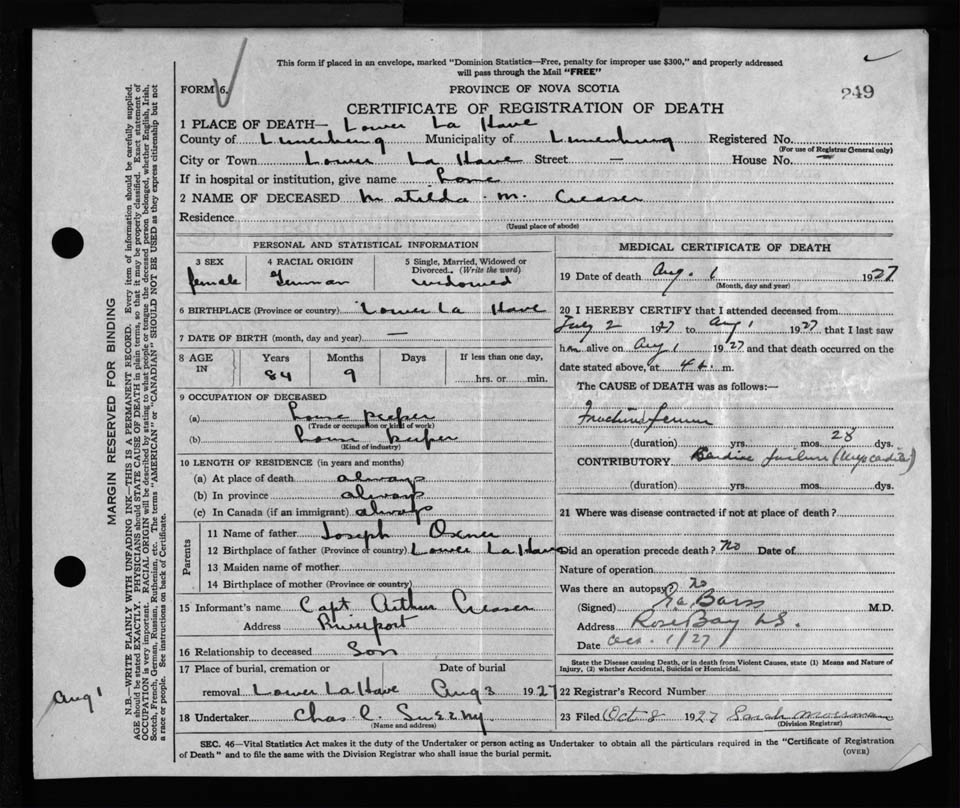 This form if placed in an envelope, marked "Dominion Statistics—Free, penalty for improper use $300," and properly addressed
will pass through the Mail "FREE"
FORM 6.
PROVINCE OF NOVA SCOTIA
249
CERTIFICATE OF REGISTRATION OF DEATH
1 PLACE OF DEATH— Lower La Have
County of Lunenburg Municipality of Lunenburg Registered No.
(For use of Registrar General only)
City or Town Lower La Have Street — House No. —
If in hospital or institution, give name home
2 NAME OF DECEASED Matilda M. Creaser
Residence
(Usual place of abode)
PERSONAL AND STATISTICAL INFORMATION
3 SEX 4 RACIAL ORIGIN 5 Single, Married, Widowed or
Divorced. (Write the word)
female German widowed
6 BIRTHPLACE (Province or country) Lower La Have
7 DATE OF BIRTH (month, day and year) —
8 AGE IN Years Months Days If less than one day,
84 9 hrs. or min.
9 OCCUPATION OF DECEASED
(a) House keeper
(Trade or occupation or kind of work)
(b) House keeper
(Kind of industry)
10 LENGTH OF RESIDENCE (in years and months)
(a) At place of death always
(b) In province always
(c) In Canada (if an immigrant) always
Parents
11 Name of father Joseph Oxner
12 Birthplace of father (Province or country) Lower La Have
13 Maiden name of mother
14 Birthplace of mother (Province or country)
15 Informant's name Capt Arthur Creaser
Address Riverport
16 Relationship to deceased Son
17 Place of burial, cremation or Date of burial
removal Lower La Have Aug 3 1927
18 Undertaker Chas. C.
(Name and address)
MEDICAL CERTIFICATE OF DEATH
19 Date of death Aug. 1 1927
(Month, day and year)
20 I HEREBY CERTIFY that I attended deceased from
July 2 1927 to Aug 1 1927 that I last saw
h alive on Aug 1 1927 and that death occurred on the
date stated above, at 4 m.
The CAUSE of DEATH was as follows:—
(duration) yrs. mos. 28 dys.
CONTRIBUTORY Cardiac failure
(duration) yrs. mos. dys.
21 Where was disease contracted if not at place of death?
Did an operation precede death? No Date of
Nature of operation
Was there an autopsy? No
(Signed) M.D.
Address Rose Bay N.S.
Date 1/27
State the Disease causing Death, or in death from Violent Causes, state (1) Means and Nature of
Injury, (2) whether Accidental, Suicidal or Homicidal.
22 Registrar's Record Number
23 Filed Oct 8 1927 Sarah
(Division Registrar)
SEC. 46—Vital Statistics Act makes it the duty of the Undertaker or person acting as Undertaker to obtain all the particulars required in the "Certificate of Registration
of Death" and to file the same with the Division Registrar who shall issue the burial permit.
(OVER)
MARGIN RESERVED FOR BINDING
N.B.—WRITE PLAINLY WITH UNFADING INK—THIS IS A PERMANENT RECORD. Every item of information should be carefully supplied.
AGE should be stated EXACTLY. PHYSICIANS should STATE CAUSE OF DEATH in plain terms, so that it may be properly classified. Exact statement of
OCCUPATION is very important. RACIAL ORIGIN will be described by stating to what people or tongue the deceased person belonged, whether English, Irish,
Scotch, French, German, Russian, Ruthenian, etc. The terms "AMERICAN" or "CANADIAN" SHOULD NOT BE USED as they express citizenship but not
a race or people. See instructions on back of Certificate.
Aug 1